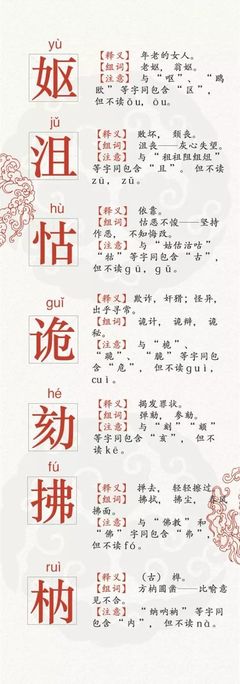 yù
妪
【释义】 年老的女人。
【组词】 老妪，翁妪。
【注意】 与“呕”、“鸥
欧”等字同包含“区”，
但不读ǒu，ōu。
jǔ
沮
【释义】 败坏，颓丧。
【组词】 沮丧——灰心失望。
【注意】 与“祖租阻组俎”
等字同包含“且”。 但不读
zū，zǔ。
hù
怙
【释义】 依靠。
【组词】 怙恶不悛——坚持
作恶， 不知悔改。
【注意】 与“姑估沽咕”
“祜”等字同包含“古”，
但不读gū，gǔ。
guǐ
诡
【释义】 欺诈，奸猾；怪异，
出乎寻常。
【组词】 诡计，诡辩，诡
秘。
【注意】 与“桅”、
“跪”、“脆”等字同包
含“危”，但不读guì，
cuì。
hé
劾
【释义】 揭发罪状。
【组词】 弹劾，参劾。
【注意】 与“刻”“颏”
等字同包含“亥”，但不
读ké。
fú
拂
【释义】 掸去，轻轻擦过。
【组词】 拂拭，拂尘，春风
拂面。
【注意】 与“佛教”和
“佛”字同包含“弗”，
但不读fó。
ruì
枘
【释义】 （古）榫。
【组词】 方枘圆凿——比喻意
见不合。
【注意】 “纳呐衲”等字同
包含“内”，但不读nà。